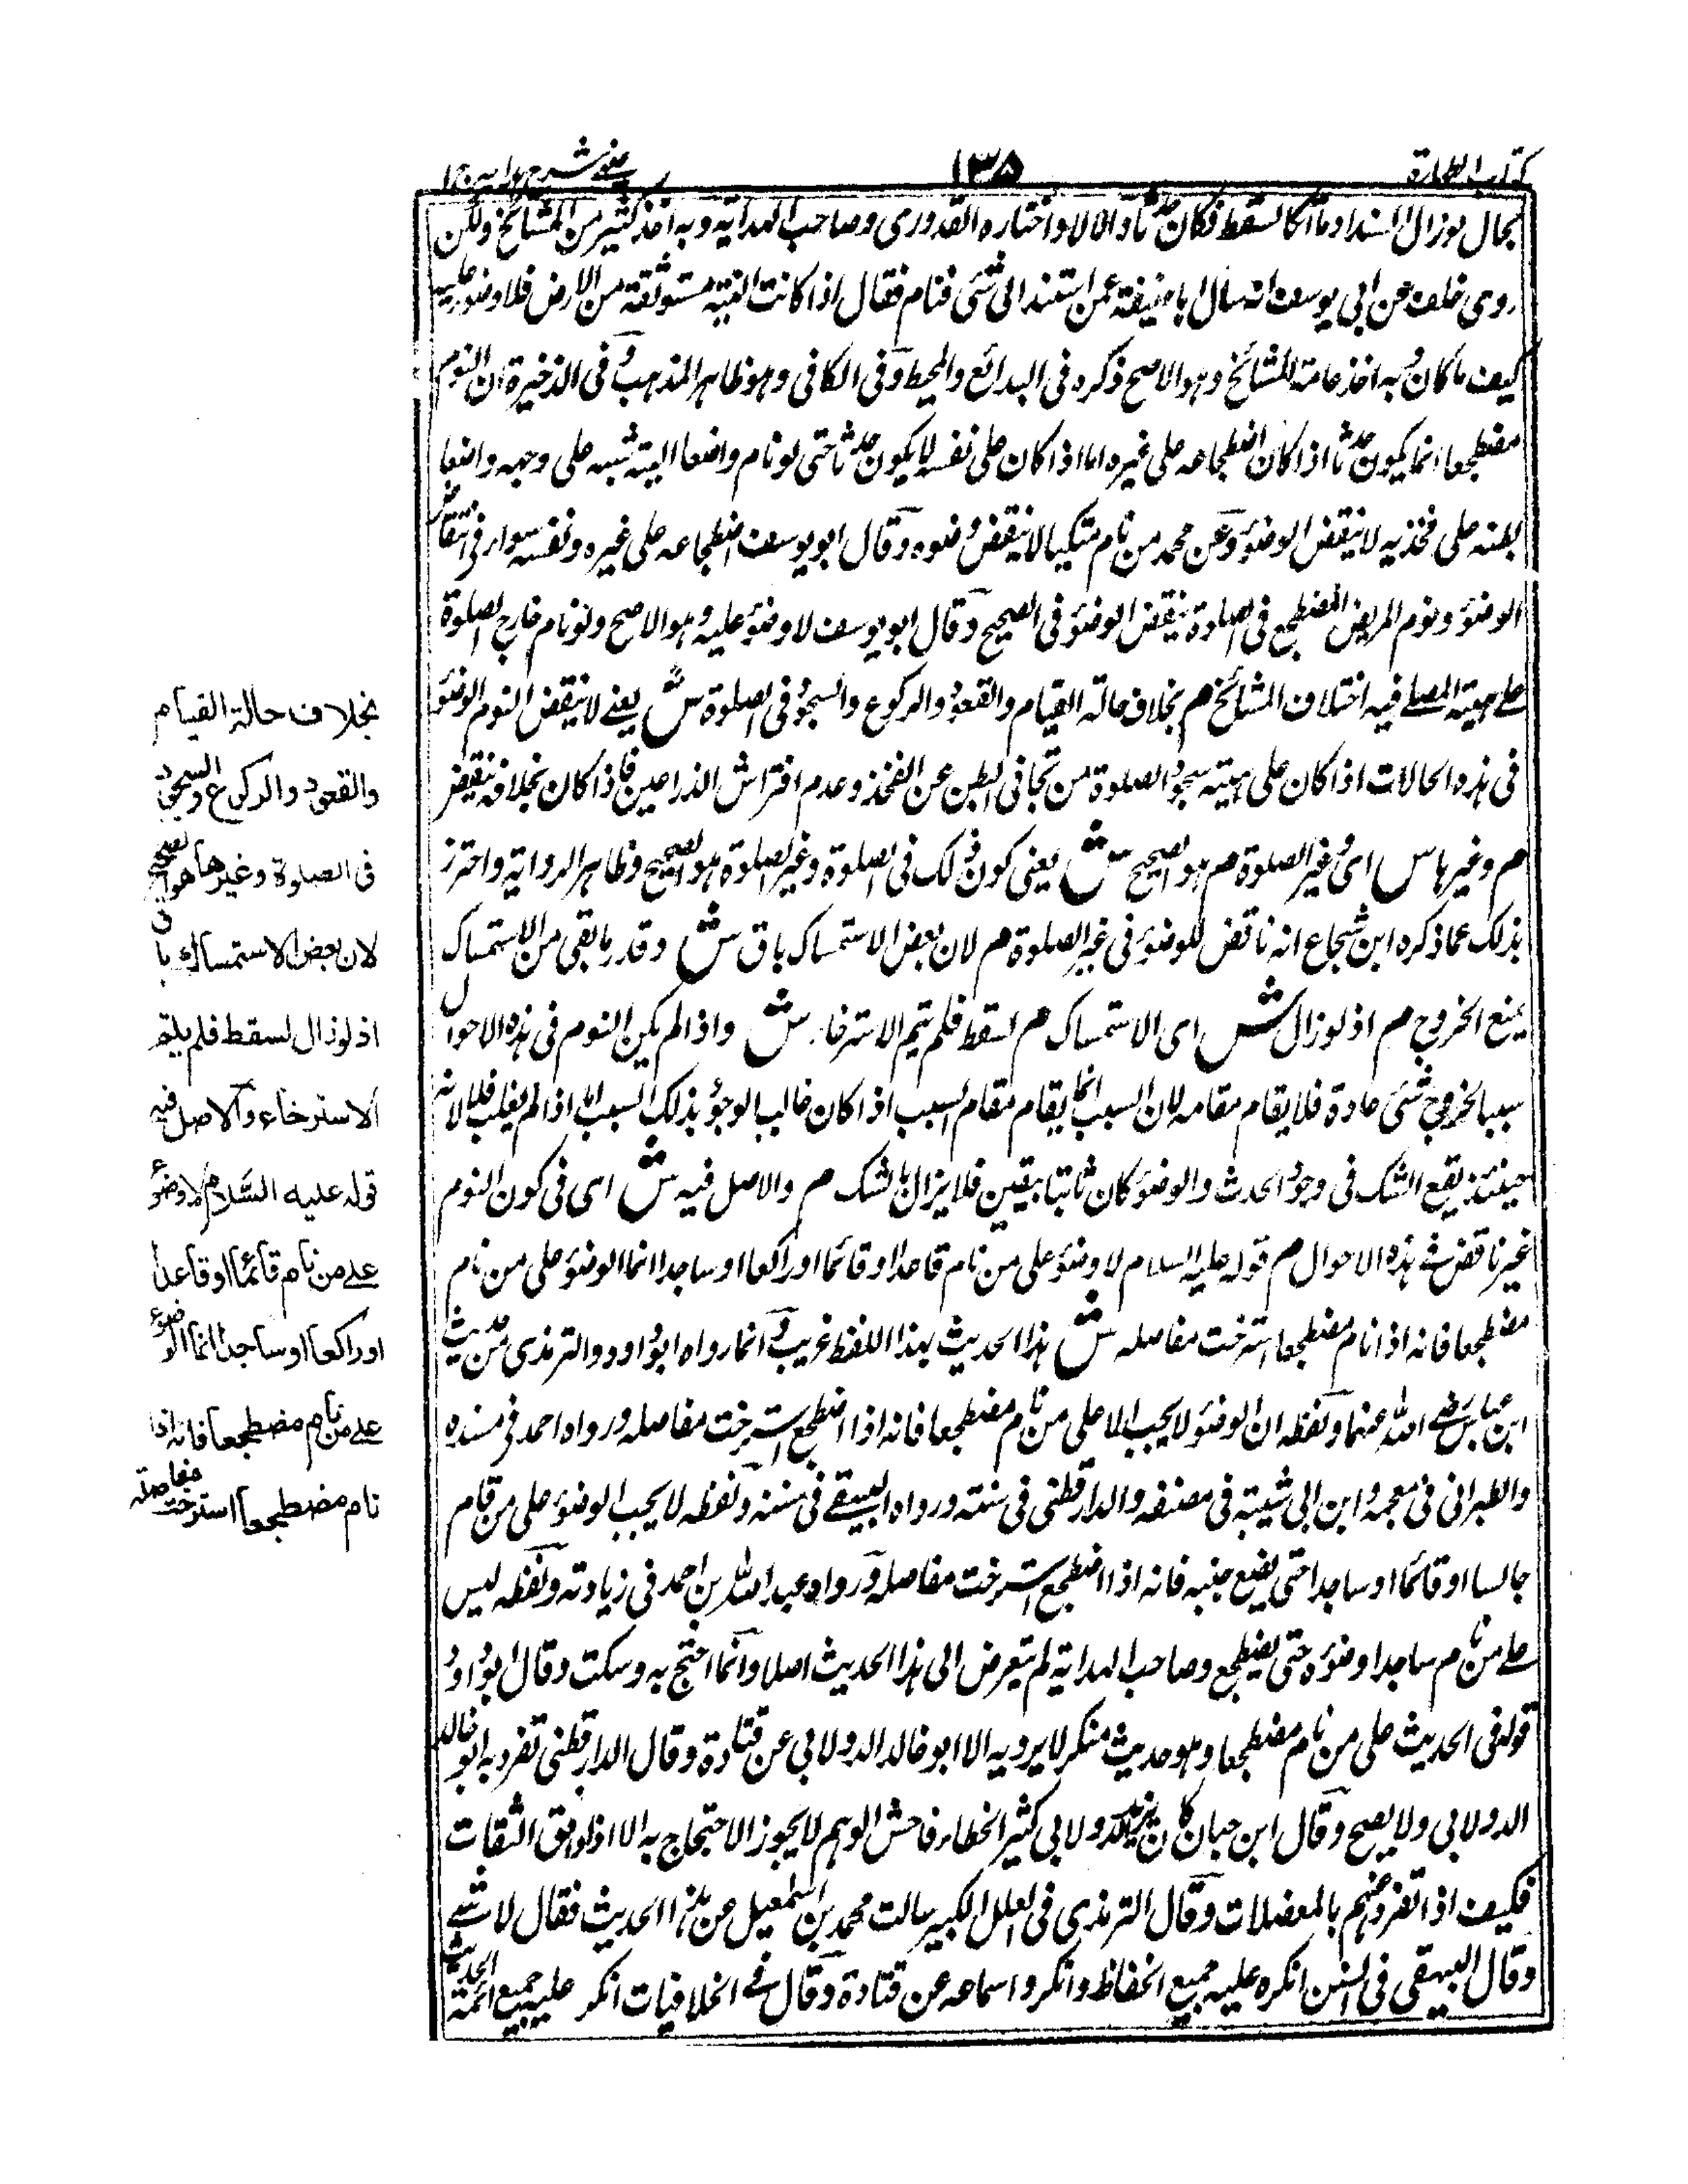 كتاب الطهارة
١٣٥
عيني شرح هداية ج١
بحال لو زال السند او ما اتكا لسقط فكان حدثا والا لا واختاره القدوري وصاحب الهداية وبه اخذ كثير من المشائخ ولكن
روى خلف عن ابي يوسف انه سال ابا حنيفة عمن استند الى شئ فنام فقال اذا كانت اليته مستوثقة من الارض فلا وضوء عليه
كيف ما كان وبه اخذ عامة المشائخ وهو الاصح ذكره في البدائع والمحيط وفي الكافي وهو ظاهر المذهب وفي الذخيرة ان النوم
مضطجعا انما يكون حدثا اذا كان اضطجاعه على غيره اما اذا كان على نفسه لا يكون حدثا حتى لو نام واضعا اليتيه على وجهه واضعا
بطنه على فخذيه لا ينقض الوضوء وعن محمد من نام متكيا لا ينقض وضوءه وقال ابو يوسف اضطجاعه على غيره ونفسه سواء في انتقاض
الوضوء ونوم المريض المضطجع في الصلوة ينقض الوضوء في الصحيح وقال ابو يوسف لا وضوء عليه وهو الاصح ولو نام خارج الصلوة
على هيئة المصلي فيه اختلاف المشائخ م بخلاف حالة القيام والقعود والركوع والسجود في الصلوة ش يعني لا ينقض النوم الوضوء
في هذه الحالات اذا كان على هيئة سجود الصلوة من تجافي البطن عن الفخذ وعدم افتراش الذراعين فاذا كان بخلافه ينقض
م وغيرها ش اي وغير الصلوة م هو الصحيح ش يعني كون ذلك في الصلوة وغير الصلوة هو الصحيح وظاهر الرواية واحترز
بذلك عما ذكره ابن شجاع انه ناقض للوضوء في غير الصلوة م لان بعض الاستمساك باق ش وقدر ما بقي من الاستمساك
يمنع الخروج م اذ لو زال ش اي الاستمساك م لسقط فلم يتم الاسترخاء ش واذا لم يكن النوم في هذه الاحوال
سببا لخروج شئ عادة فلا يقام مقامه لان السبب انما يقام مقام المسبب اذا كان غالب الوجود بذلك السبب اما اذا لم يغلب فلا لانه
حينئذ يقع الشك في وجود الحدث والوضوء كان ثابتا بيقين فلا يزال بالشك م والاصل فيه ش اي في كون النوم
غير ناقض في هذه الاحوال م قوله عليه السلام لا وضوء على من نام قاعدا او قائما او راكعا او ساجدا انما الوضوء على من نام
مضطجعا فانه اذا نام مضطجعا استرخت مفاصله ش هذا الحديث بهذا اللفظ غريب وانما رواه ابو داود والترمذي من حديث
ابن عباس رضي الله عنهما ولفظه ان الوضوء لا يجب الا على من نام مضطجعا فانه اذا اضطجع استرخت مفاصله ورواه احمد في مسنده
والطبراني في معجمه وابن ابي شيبة في مصنفه والدارقطني في سننه ورواه البيهقي في سننه ولفظه لا يجب الوضوء على من نام
جالسا او قائما او ساجدا حتى يضع جنبه فانه اذا اضطجع استرخت مفاصله ورواه عبد الله بن احمد في زيادته ولفظه ليس
على من نام ساجدا وضوء حتى يضطجع وصاحب الهداية لم يتعرض الى هذا الحديث اصلا وانما احتج به وسكت وقال ابو داود
قوله في الحديث على من نام مضطجعا وهو حديث منكر لا يرويه الا ابو خالد الدولابي عن قتادة وقال الدارقطني تفرد به ابو خالد
الدولابي ولا يصح وقال ابن حبان كان يزيد الدولابي كثير الخطاء فاحش الوهم لا يجوز الاحتجاج به الا اذا وافق الثقات
فكيف اذا تفرد عنهم بالمعضلات وقال الترمذي في العلل الكبير سالت محمد بن اسمعيل عن هذا الحديث فقال لا شئ
وقال البيهقي في السنن انكره عليه جميع الحفاظ وانكروا سماعه عن قتادة وقال في الخلافيات انكر عليه جميع ائمة الحديث
بخلاف حالة القيام
والقعود والركوع والسجود
فى الصلوة وغيرها هو الصحيح
لان بعض الاستمساك باق
اذ لو زال لسقط فلم يتم
الاسترخاء والاصل فيه
قوله عليه السلام لا وضوء
على من نام قائما او قاعدا
او راكعا او ساجدا انما الوضوء
على من نام مضطجعا فانه اذا
نام مضطجعا استرخت مفاصله